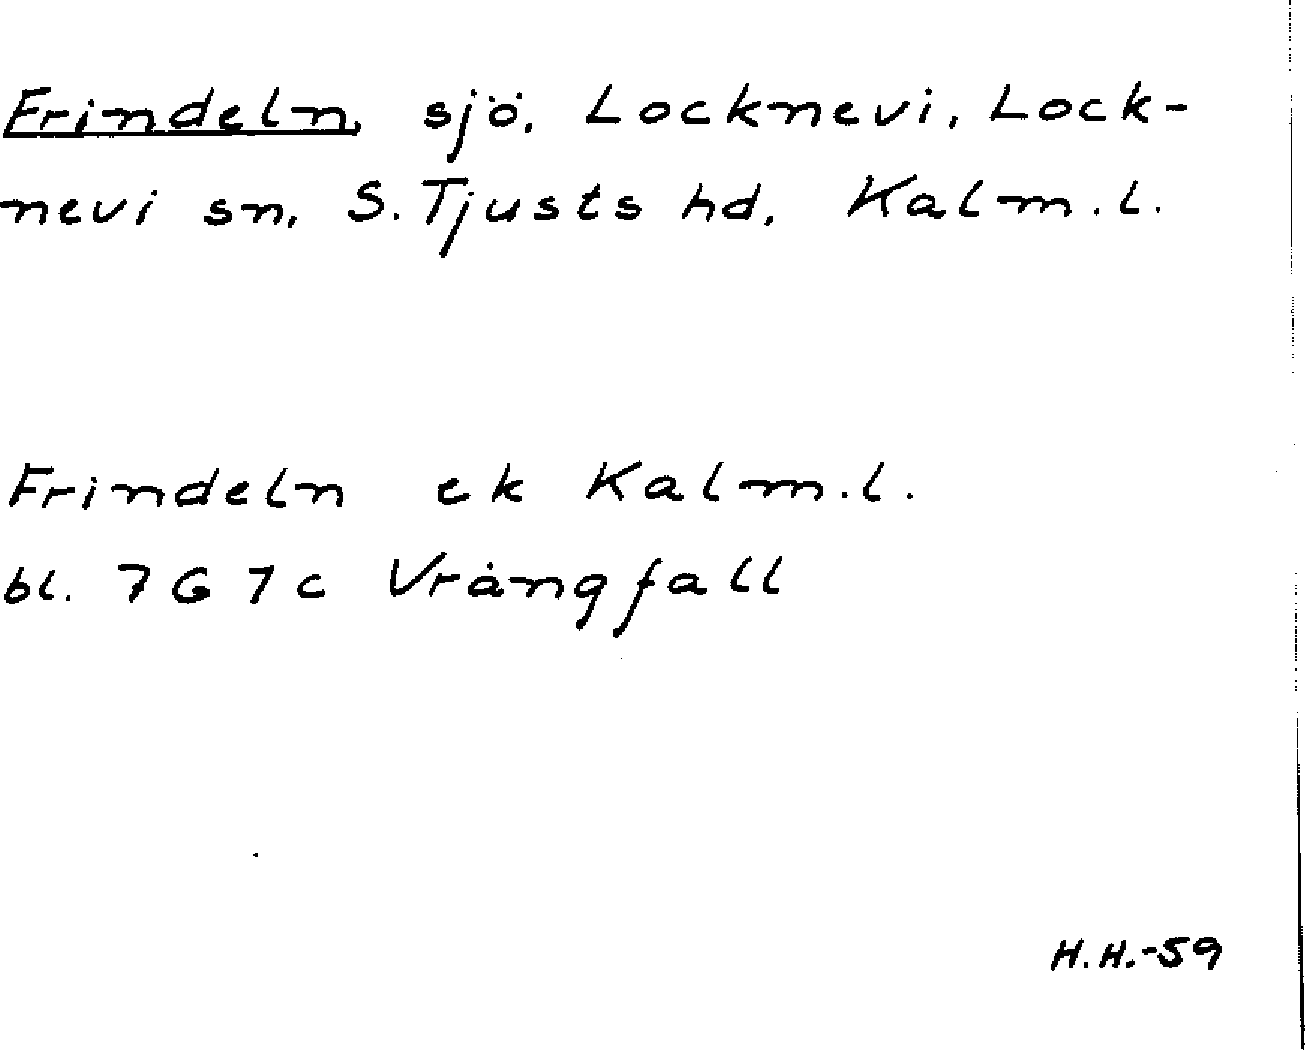 Frindeln, sjö, Locknevi, Lock-
nevi sn, S. Tjusts hd, Kalm. l.
Frindeln ek Kalm. l.
bl. 7 G 7 c Vrångfall
H.H.-59